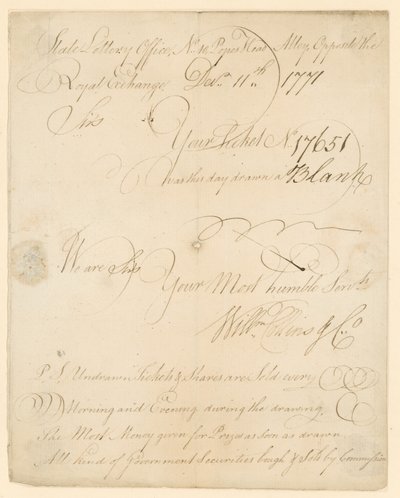 State Lottery Office, No. 10 Popes Head Alley, Opposite the
Royal Exchange, Decr. 11th. 1771
Sir
Your Ticket No. 17651
was this day drawn a Blank
We are Sir
Your Most humble Servts
Willm & Co
P.S. Undrawn Tickets & Shares are Sold every
Morning and Evening during the drawing
The Most Money given for Prizes as soon as drawn
All kind of Government Securities bough & Sold by Commission